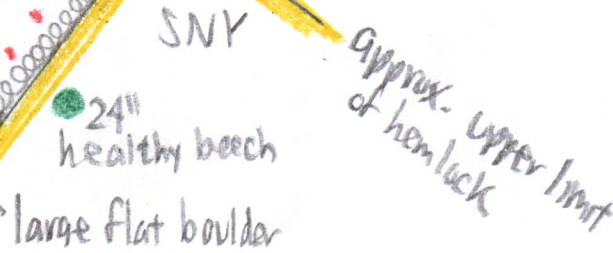 SNY
24"
healthy beech
large flat boulder
approx. upper limit
of hemlock